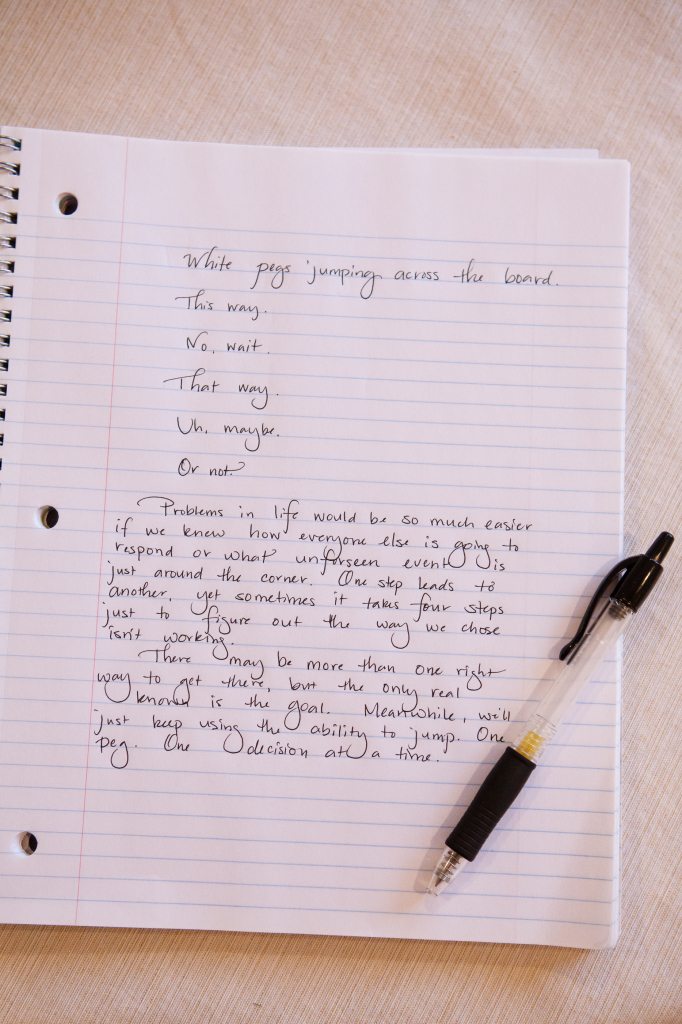 White pegs jumping across the board.
This way.
No, wait.
That way.
Uh, maybe.
Or not?
Problems in life would be so much easier
if we knew how everyone else is going to
respond or what unforseen event is
just around the corner. One step leads to
another, yet sometimes it takes four steps
just to figure out the way we chose
isn't working.
There may be more than one right
way to get there, but the only real
known is the goal. Meanwhile, we'll
just keep using the ability to jump. One
peg. One decision at a time.